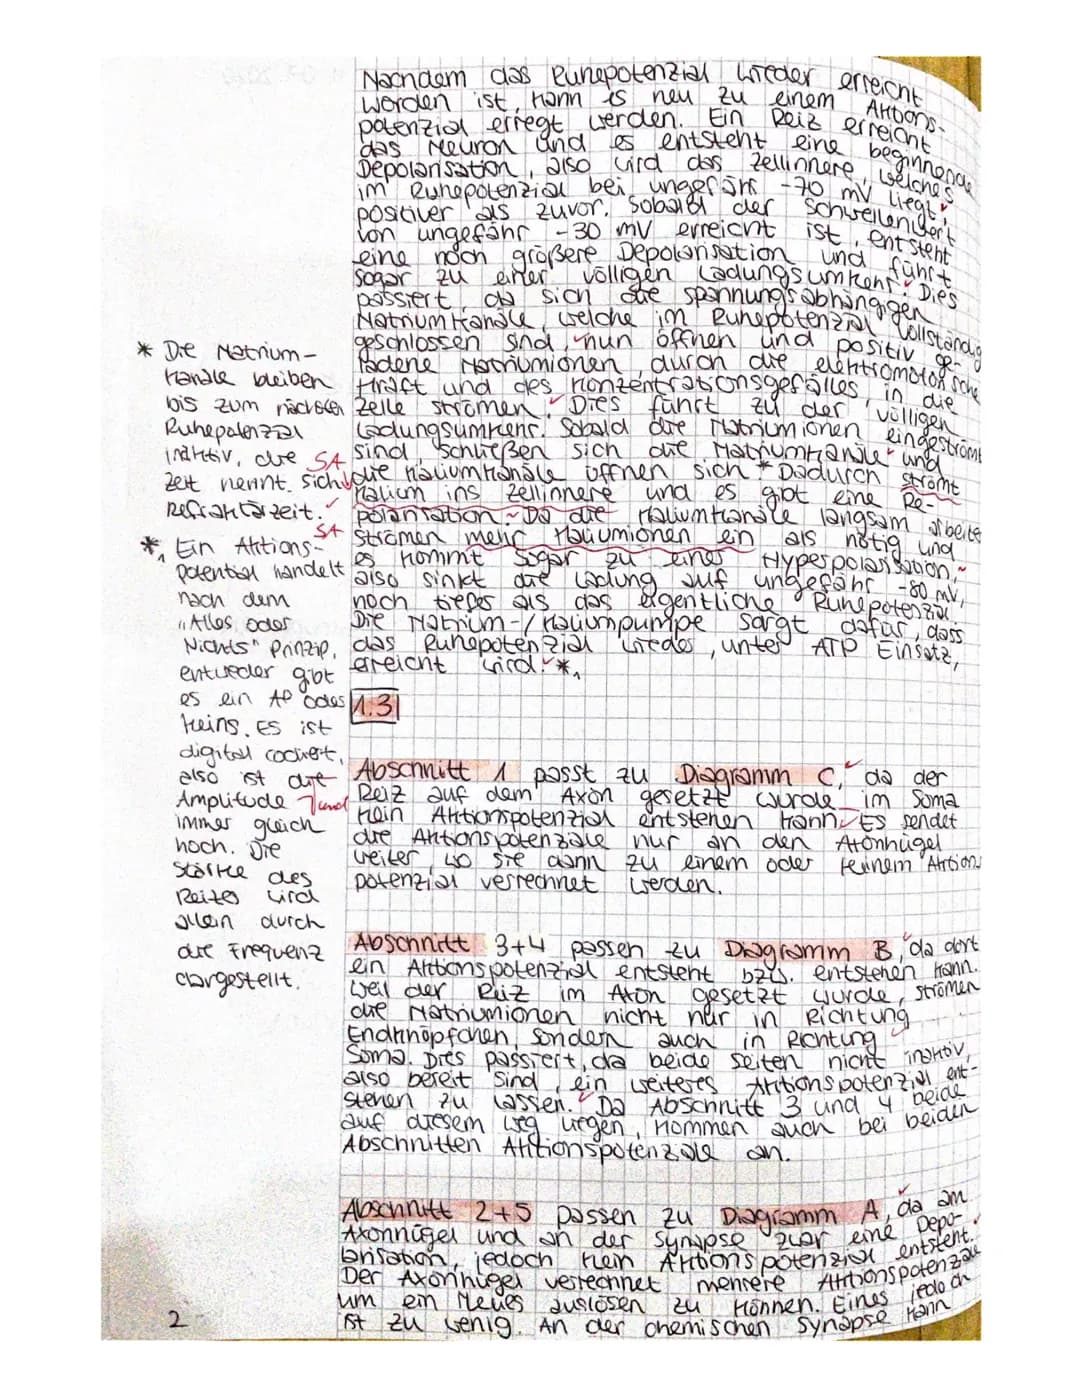 Nachdem das Ruhepotenzial wieder erreicht
worden ist, kann es neu zu einem Aktions-
potenzial erregt werden. Ein Reiz erreicht
das Neuron und es entsteht eine beginnende
Depolarisation, also wird das Zellinnere, welches
im Ruhepotenzial bei ungefähr -70 mV liegt,
positiver als zuvor. Sobald der Schwellenwert
von ungefähr -30 mV erreicht ist, entsteht
eine noch größere Depolarisation und führt
sogar zu einer völligen Ladungsumkehr. Dies
passiert, da sich die spannungsabhängigen
Natriumkanäle, welche im Ruhepotenzial vollständig
geschlossen sind, nun öffnen und positiv ge-
ladene Natriumionen, durch die elektromotorische
Kraft und des Konzentrationsgefälles, in die
Zelle strömen. Dies führt zu der völligen
Ladungsumkehr. Sobald die Natriumionen eingeströmt
sind, schließen sich die Natriumkanäle und
die Kaliumkanäle öffnen sich.* Dadurch strömt
Kalium ins Zellinnere und es gibt eine Re-
polarisation. Da die Kaliumkanäle langsam arbeiten
strömen mehr Kaliumionen ein als nötig und
es kommt sogar zu einer Hyperpolarisation,
also sinkt die Ladung auf ungefähr -80 mV,
noch tiefer als das eigentliche Ruhepotenzial.
Die Natrium-/Kaliumpumpe sorgt dafür, dass
das Ruhepotenzial wieder, unter ATP Einsatz,
erreicht wird.*1
* Die Natrium-
Kanäle bleiben
bis zum nächsten
Ruhepotenzial
inaktiv, die SA
Zeit nennt sich
Refraktärzeit.
SA
*1 Ein Aktions-
potential handelt
nach dem
"Alles oder
Nichts" Prinzip,
entweder gibt
es ein AP oder
keins. Es ist
digital codiert,
also ist die
Amplitude und
immer gleich
hoch. Die
Stärke des
Reizes wird
allein durch
die Frequenz
dargestellt.
1.3
Abschnitt 1 passt zu Diagramm C, da der
Reiz auf dem Axon gesetzt wurde im Soma
kein Aktionspotenzial entstehen kann. Es sendet
die Aktionspotenziale nur an den Axonhügel
weiter, wo sie dann zu einem oder keinem Aktions
potenzial verrechnet werden.
Abschnitt 3+4 passen zu Diagramm B, da dort
ein Aktionspotenzial entsteht bzw. entstehen kann.
Weil der Reiz im Axon gesetzt wurde, strömen
die Natriumionen nicht nur in Richtung
Endknöpfchen, sondern auch in Richtung
Soma. Dies passiert, da beide Seiten nicht inaktiv,
also bereit sind, ein weiteres Aktionspotenzial ent-
stehen zu lassen. Da Abschnitt 3 und 4 beide
auf diesem Weg liegen, kommen auch bei beiden
Abschnitten Aktionspotenziale an.
Abschnitt 2+5 passen zu Diagramm A, da am
Axonhügel und an der Synapse zwar eine Depo-
larisation, jedoch kein Aktionspotenzial entsteht.
Der Axonhügel verrechnet mehrere Aktionspotenziale
um ein Neues auslösen zu können. Eines jedoch
ist zu wenig. An der chemischen Synapse kann
2